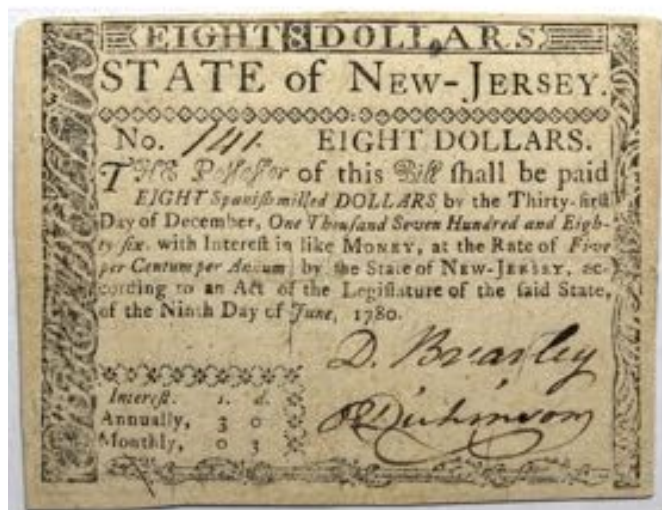 EIGHT 8 DOLLARS
STATE of NEW-JERSEY.
No. 141. EIGHT DOLLARS.
THE Poſſeſſor of this Bill ſhall be paid
EIGHT Spaniſh milled DOLLARS by the Thirty-firſt
Day of December, One Thouſand Seven Hundred and Eigh-
ty-ſix, with Intereſt in like MONEY, at the Rate of Five
per Centum per Annum, by the State of NEW-JERSEY, ac-
cording to an Act of the Legiſlature of the ſaid State,
of the Ninth Day of June, 1780.
D. Brearley
Dickinson
Intereſt. s. d.
Annually, 3 0
Monthly, 0 3